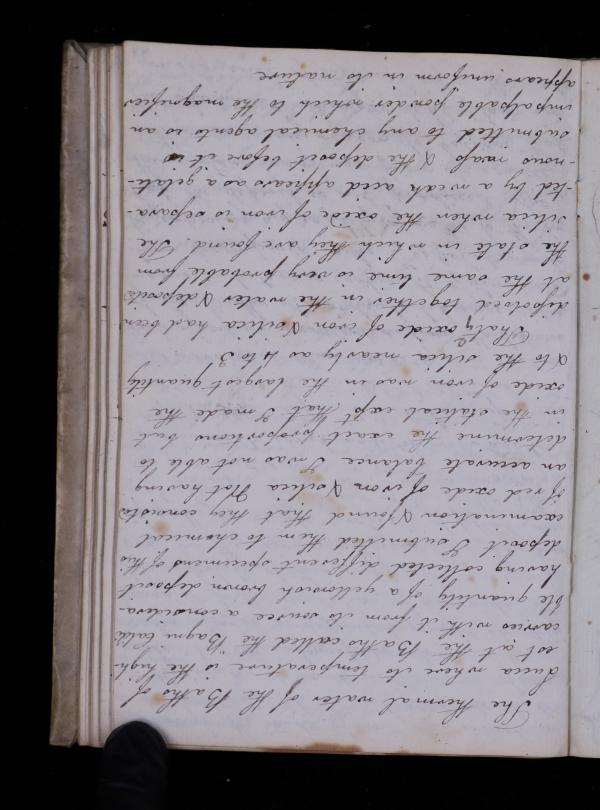 The thermal water of the Baths of
Lucca where its temperature is the high-
est, at the Baths called the Bagni Caldi
carries with it from its source a considera-
ble quantity of a yellowish brown deposit
having collected different specimens of this
deposit I submitted them to chemical
examination & found that they consists
of red oxide of iron & silica Not having
an accurate balance I was not able to
determine the exact proportions but
in the statical expt. that I made the
oxide of iron was in the largest quantity
& to the silica nearly as 4 to 3
That oxide of iron & silica had been
dissolved together in the water & deposited
at the same time is very probable from
the state in which they are found. The
silica when the oxide of iron is separa-
-ted by a weak acid appears as a gelati-
-nous mass & the deposit before it is
submitted to any chemical agents is an
impalpable powder which to the magnifier
appears uniform in its nature